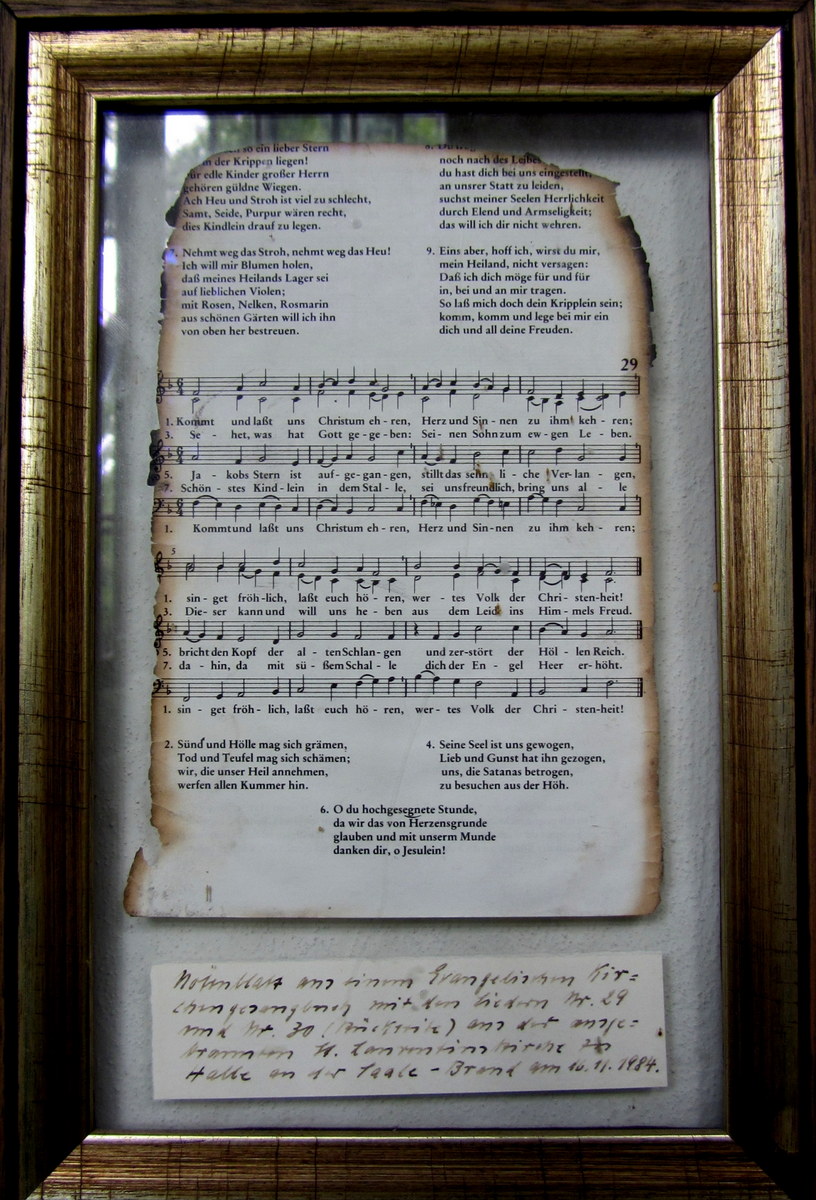 so ein lieber Stern
in der Krippen liegen!
Für edle Kinder großer Herrn
gehören güldne Wiegen.
Ach Heu und Stroh ist viel zu schlecht,
Samt, Seide, Purpur wären recht,
dies Kindlein drauf zu legen.
7. Nehmt weg das Stroh, nehmt weg das Heu!
Ich will mir Blumen holen,
daß meines Heilands Lager sei
auf lieblichen Violen;
mit Rosen, Nelken, Rosmarin
aus schönen Gärten will ich ihn
von oben her bestreuen.
noch nach des Leibes
du hast dich bei uns eingestellt,
an unsrer Statt zu leiden,
suchst meiner Seelen Herrlichkeit
durch Elend und Armseligkeit;
das will ich dir nicht wehren.
9. Eins aber, hoff ich, wirst du mir,
mein Heiland, nicht versagen:
Daß ich dich möge für und für
in, bei und an mir tragen.
So laß mich doch dein Kripplein sein;
komm, komm und lege bei mir ein
dich und all deine Freuden.
29
1. Kommt und laßt uns Christum eh - ren, Herz und Sin - nen zu ihm keh - ren;
3. Se - het, was hat Gott ge - ge - ben: Sei - nen Sohn zum ew - gen Le - ben.
5. Ja - kobs Stern ist auf - ge - gan - gen, stillt das sehn - li - che Ver - lan - gen,
7. Schön - stes Kind - lein in dem Stal - le, sei uns freundlich, bring uns al - le
1. Kommt und laßt uns Christum eh - ren, Herz und Sin - nen zu ihm keh - ren;
5
1. sin - get fröh - lich, laßt euch hö - ren, wer - tes Volk der Chri - sten - heit!
3. Die - ser kann und will uns he - ben aus dem Leid ins Him - mels Freud.
5. bricht den Kopf der al - ten Schlan - gen und zer - stört der Höl - len Reich.
7. da - hin, da mit sü - ßem Schal - le dich der En - gel Heer er - höht.
1. sin - get fröh - lich, laßt euch hö - ren, wer - tes Volk der Chri - sten - heit!
2. Sünd und Hölle mag sich grämen,
Tod und Teufel mag sich schämen;
wir, die unser Heil annehmen,
werfen allen Kummer hin.
4. Seine Seel ist uns gewogen,
Lieb und Gunst hat ihn gezogen,
uns, die Satanas betrogen,
zu besuchen aus der Höh.
6. O du hochgesegnete Stunde,
da wir das von Herzensgrunde
glauben und mit unserm Munde
danken dir, o Jesulein!
Notenblatt aus einem Evangelischen Kir-
chengesangbuch mit den Liedern Nr. 29
und Nr. 30 (Rückseite) aus der ausge-
brannten St. Laurentiuskirche zu
Halle an der Saale - Brand am 16.11.1984.